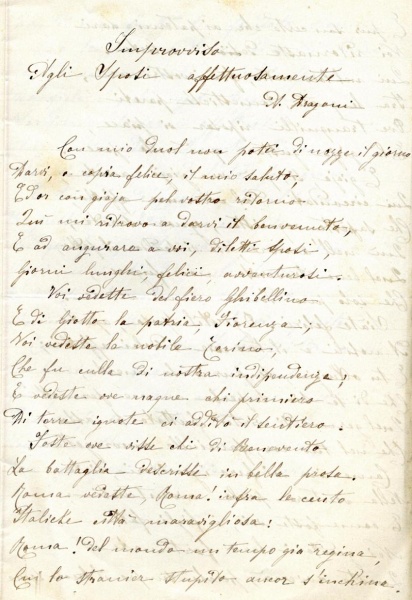 Improvviso
Agli Sposi affettuosamente
A. Dragoni
Con mio duol non potei di nozze il giorno
Darvi, o copia felice, il mio saluto,
E or con gioja pel vostro ritorno
Qui mi ritrovo a darvi il benvenuto,
E ad augurare a voi, diletti sposi,
Giorni lunghi, felici, avventurosi.
Voi vedeste del fiero Ghibellino
E di Giotto la patria, Fiorenza,
Voi vedeste la nobile Torino,
Che fu culla di nostra indipendenza;
E vedeste ove nacque chi primiero
Di terre ignote ci additò il sentiero.
Foste ove visse chi di Benevento
La battaglia descrisse in bella prosa.
Roma vedeste, Roma! infra le cento
Italiche città maravigliosa:
Roma! del mondo un tempo già regina,
Cui lo stranier stupito ancor s'inchina.